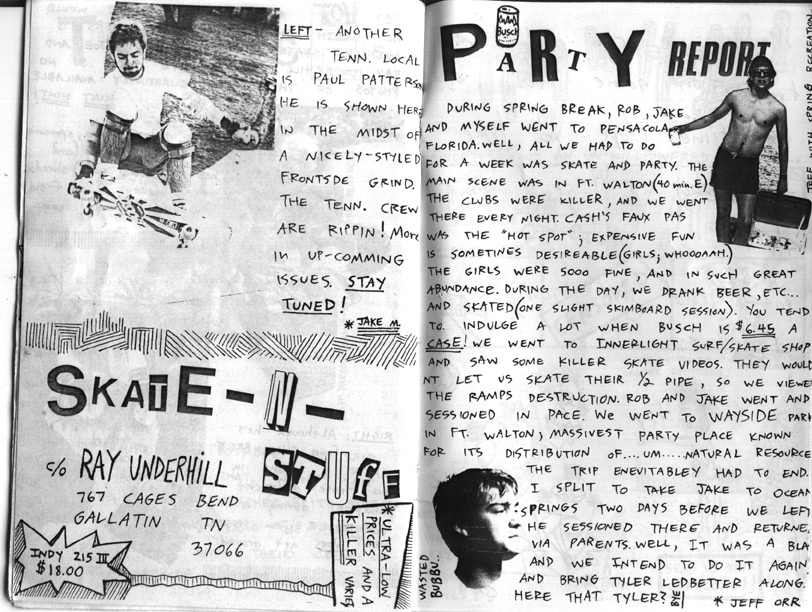 LEFT - ANOTHER
TENN. LOCAL
IS PAUL PATTERSON
HE IS SHOWN HERE
IN THE MIDST OF
A NICELY-STYLED
FRONTSDE GRIND.
THE TENN. CREW
ARE RIPPIN! MORE
IN UP-COMMING
ISSUES. STAY
TUNED!
* JAKE M.
SKATE-N-
STUFF
c/o RAY UNDERHILL
767 CAGES BEND
GALLATIN TN
37066
INDY 215 III
$18.00
*ULTRA-LOW
PRICES AND A
KILLER VARIE
Busch
PARTY REPORT
DURING SPRING BREAK, ROB, JAKE
AND MYSELF WENT TO PENSACOLA,
FLORIDA. WELL, ALL WE HAD TO DO
FOR A WEEK WAS SKATE AND PARTY. THE
MAIN SCENE WAS IN FT. WALTON (40 min. E)
THE CLUBS WERE KILLER, AND WE WENT
THERE EVERY NIGHT. CASH'S FAUX PAS
WAS THE "HOT SPOT"; EXPENSIVE FUN
IS SOMETINES DESIREABLE (GIRLS; WHOOOAAH.)
THE GIRLS WERE SOOO FINE, AND IN SUCH GREAT
ABUNDANCE. DURING THE DAY, WE DRANK BEER, ETC...
AND SKATED (ONE SLIGHT SKIMBOARD SESSION). YOU TEND
TO INDULGE A LOT WHEN BUSCH IS $6.45 A
CASE! WE WENT TO INNERLIGHT SURF/SKATE SHOP
AND SAW SOME KILLER SKATE VIDEOS. THEY WOULD
NT LET US SKATE THEIR ½ PIPE, SO WE VIEWE
THE RAMPS DESTRUCTION. ROB AND JAKE WENT AND
SESSIONED IN PACE. WE WENT TO WAYSIDE PARK
IN FT. WALTON; MASSIVEST PARTY PLACE KNOWN
FOR ITS DISTRIBUTION OF....UM.....NATURAL RESOURCE
THE TRIP ENEVITABLEY HAD TO END.
I SPLIT TO TAKE JAKE TO OCEAN
SPRINGS TWO DAYS BEFORE WE LEFT
HE SESSIONED THERE AND RETURNE
VIA PARENTS. WELL, IT WAS A BLA
AND WE INTEND TO DO IT AGAIN
AND BRING TYLER LEDBETTER ALONG.
HERE THAT TYLER? BYE
* JEFF ORR
WASTED
BUBBU..
JEFF WITH SPRING RECREATION